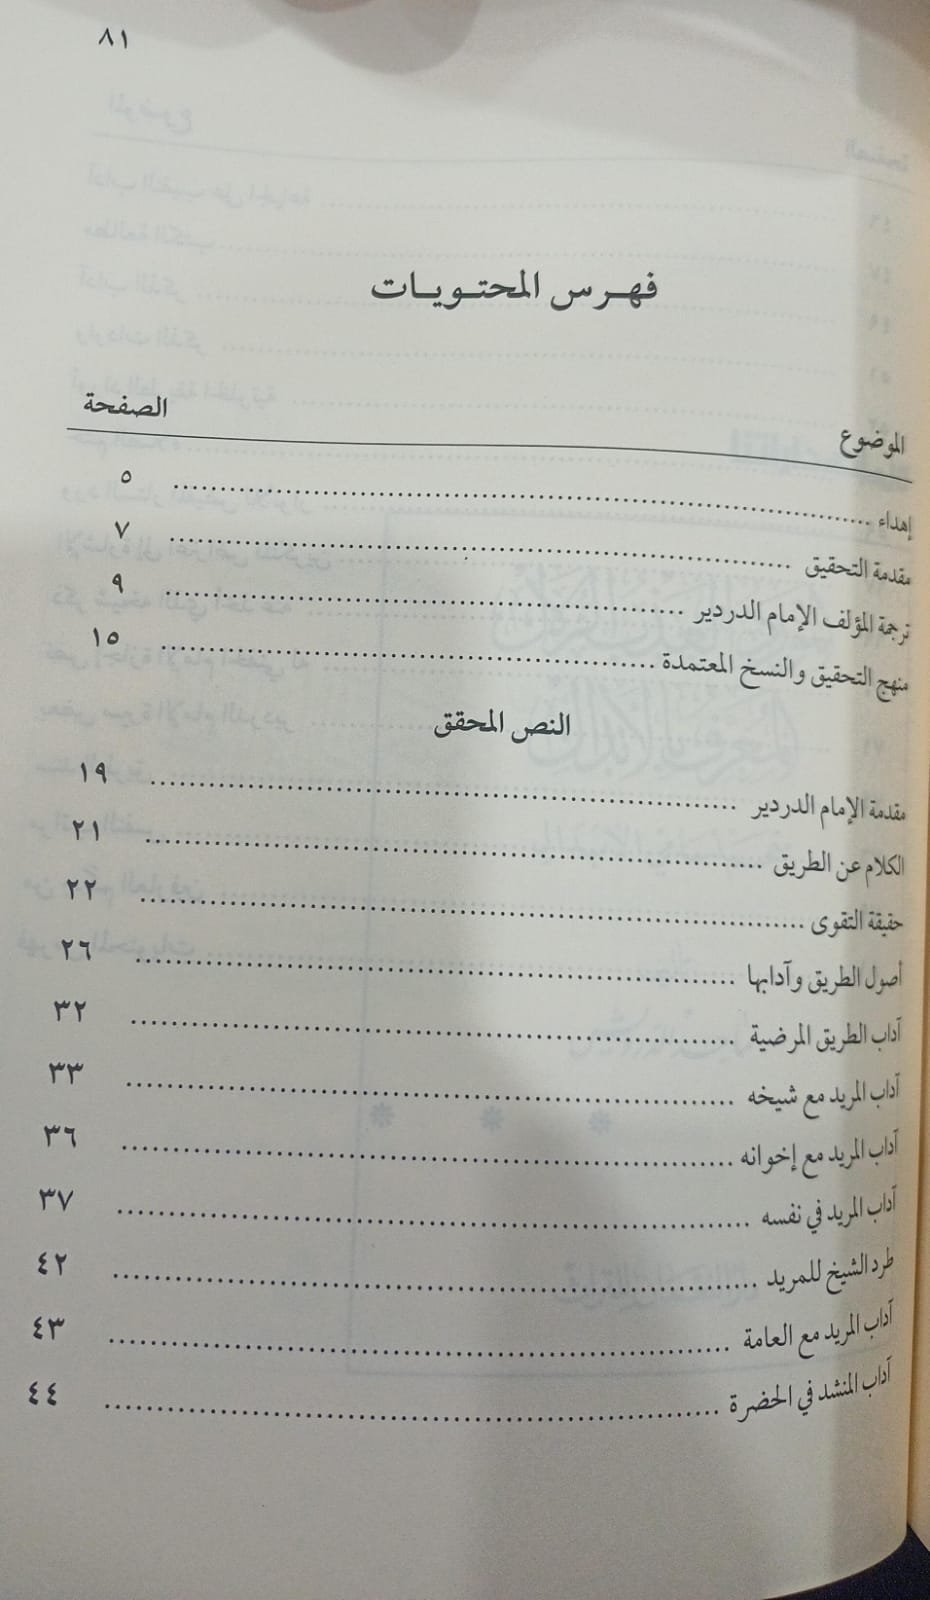 ٨١
فهرس المحتويات
الموضوع الصفحة
إهداء ........ ٥
مقدمة التحقيق ........ ٧
ترجمة المؤلف الإمام الدردير ........ ٩
منهج التحقيق والنسخ المعتمدة ........ ١٥
النص المحقق
مقدمة الإمام الدردير ........ ١٩
الكلام عن الطريق ........ ٢١
حقيقة التقوى ........ ٢٢
أصول الطريق وآدابها ........ ٢٦
آداب الطريق المرضية ........ ٣٢
آداب المريد مع شيخه ........ ٣٣
آداب المريد مع إخوانه ........ ٣٦
آداب المريد في نفسه ........ ٣٧
طرد الشيخ للمريد ........ ٤٢
آداب المريد مع العامة ........ ٤٣
آداب المنشد في الحضرة ........ ٤٤